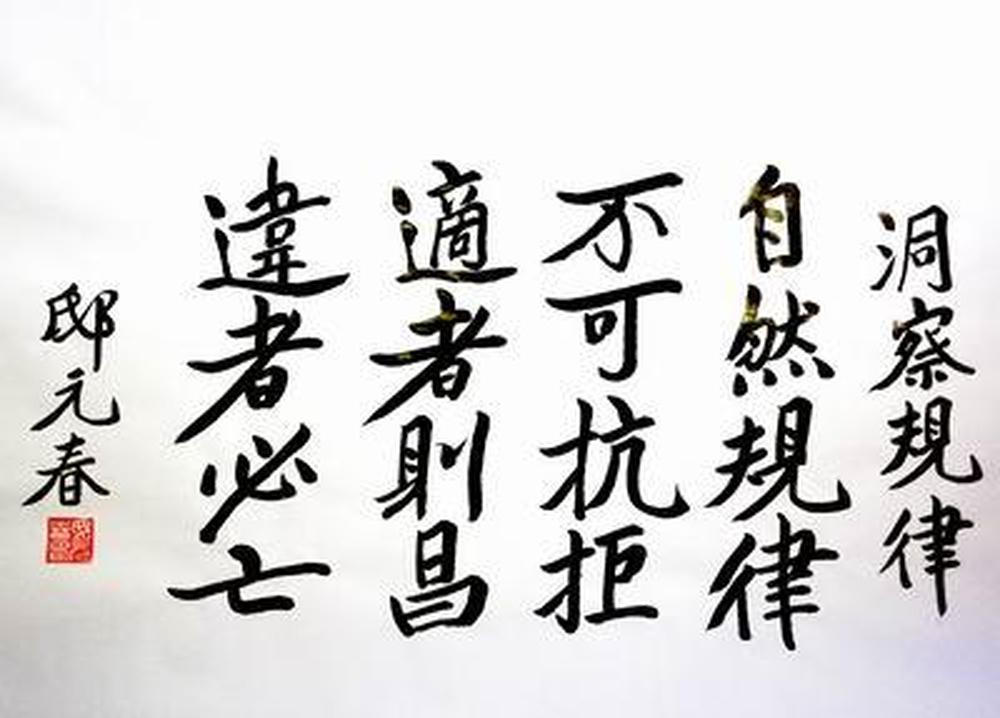 洞察規律
自然規律
不可抗拒
適者則昌
違者必亡
邸元春